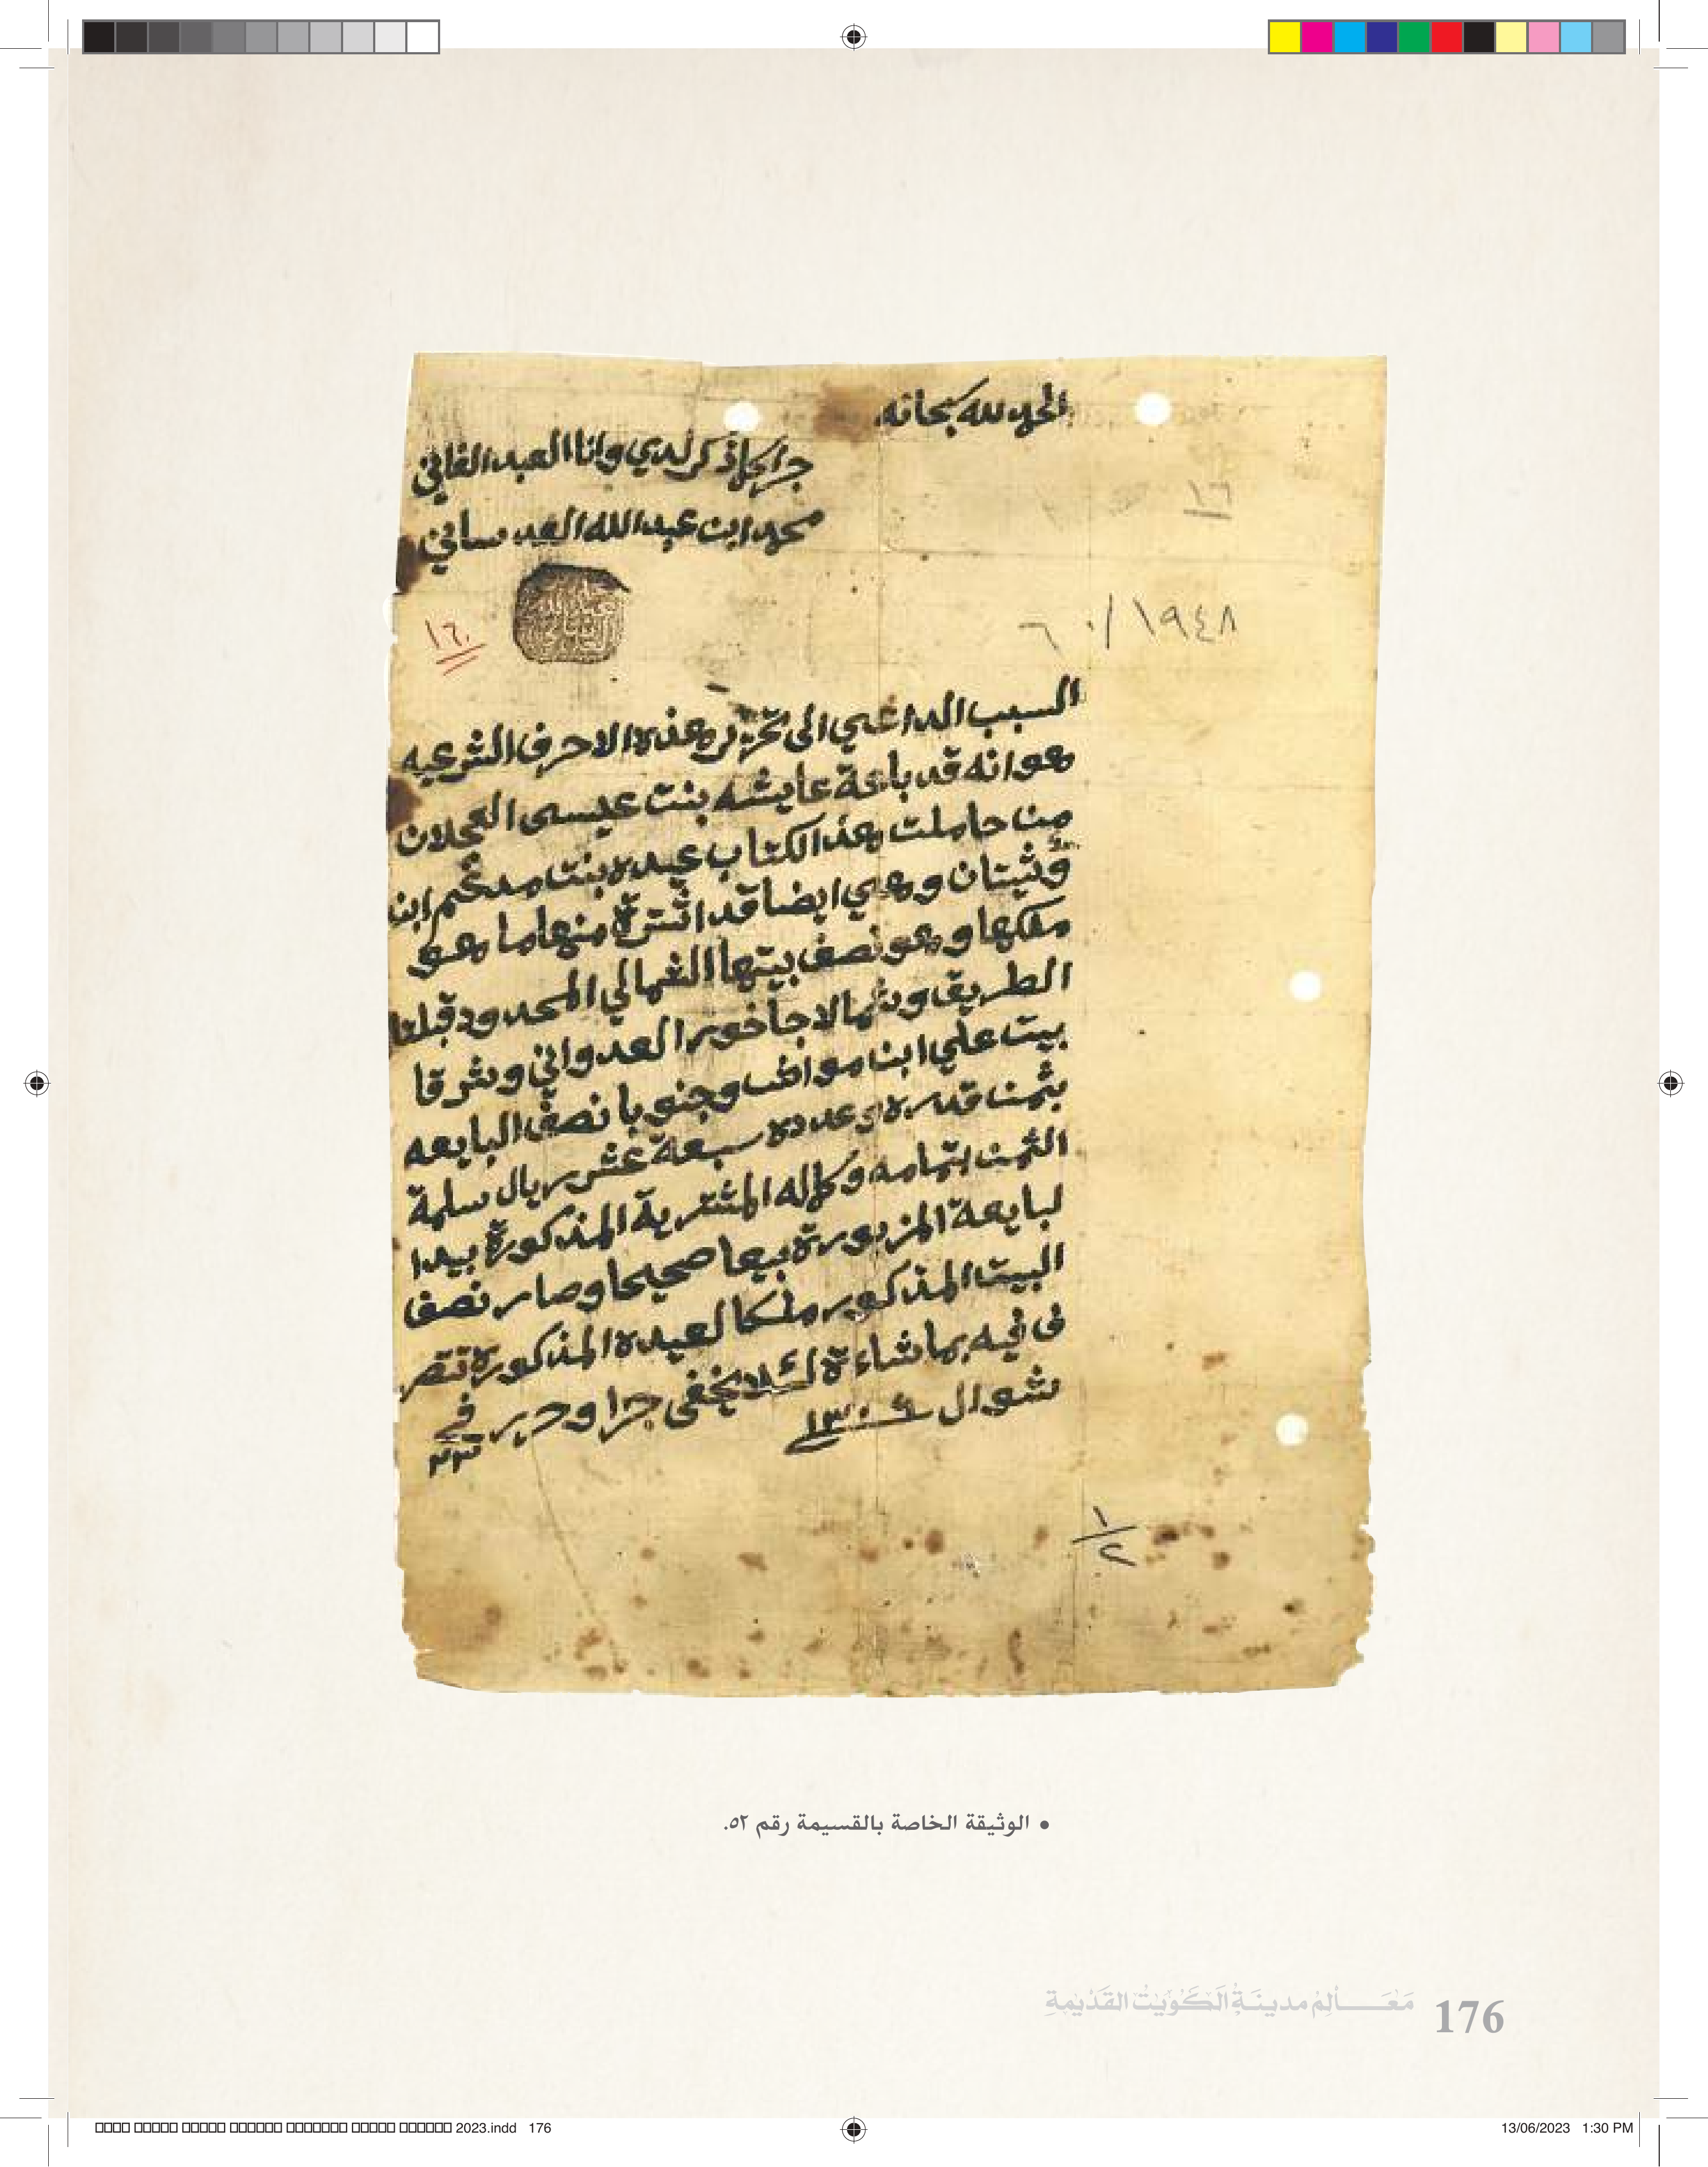 الحمد لله سبحانه
جرا كما ذكر لدي وانا العبد الفاني
محمد ابن عبد الله العدساني
١٦
١٦
٦٠/١٩٤٨
السبب الداعي الى تحرير هذه الاحرف الشرعيه
هو انه قد باعة عايشه بنت عيسى العجلان
من حاملت هذ الكتاب عيده بنت مدغم ابن
وثيتان وهي ايضا قد اشترة منها ما هو
ملكها وهو نصف بيتها الشمالي المحدود قبلتا
الطريق وشمالا جاخور العدواني وشرقا
بيت علي ابن مواش وجنوبا نصف البايعه
بثمن قدره وعدده سبعة عشر ريال سلمة
الثمن بتمامه وكماله المشترية المذكورة بيد ا
لبايعة المزبورة بيعا صحيحا وصار نصف
البيت المذكور ملكا لعيده المذكورة تتصر
ف فيه بما شاءة لئلا يخفى جرا وحرر في
٢٣
شوال ١٣٠٩
١/٢
• الوثيقة الخاصة بالقسيمة رقم ٥٢.
مَعَـالِمُ مدينَةِ الكُوَيْتْ القَدِيمَةِ 176
2023.indd 176
13/06/2023 1:30 PM